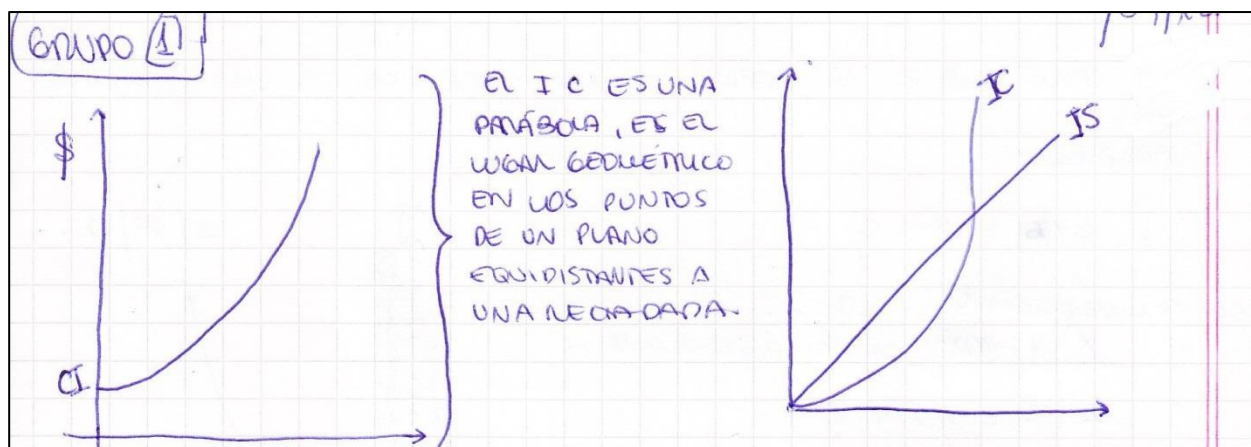 GRUPO 1
$
CI
EL IC ES UNA
PARÁBOLA, ES EL
LUGAR GEOMÉTRICO
EN LOS PUNTOS
DE UN PLANO
EQUIDISTANTES A
UNA RECTA DADA.
IC
IS